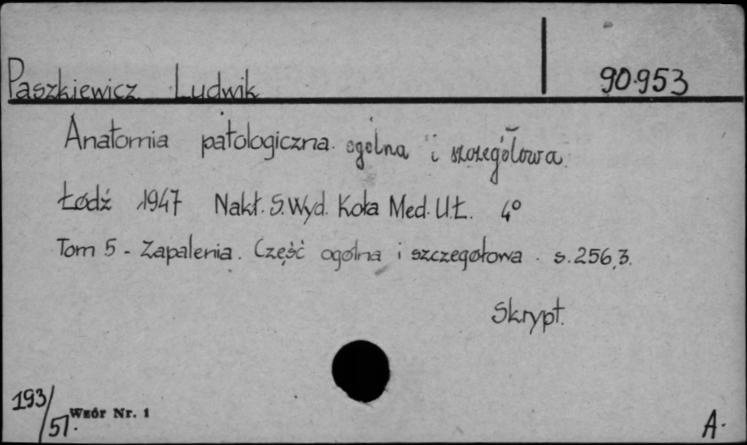 Paszkiewicz Ludwik
90953
Anatomia patologiczna ogólna i szczegółowa.
Łódź 1947 Nakł. S. Wyd. Koła Med. U.Ł. 4°
Tom 5 - Zapalenia. Część ogólna i szczegołowa. s. 256, 3.
Skrypt.
193/57.
Wzór Nr. 1
A.